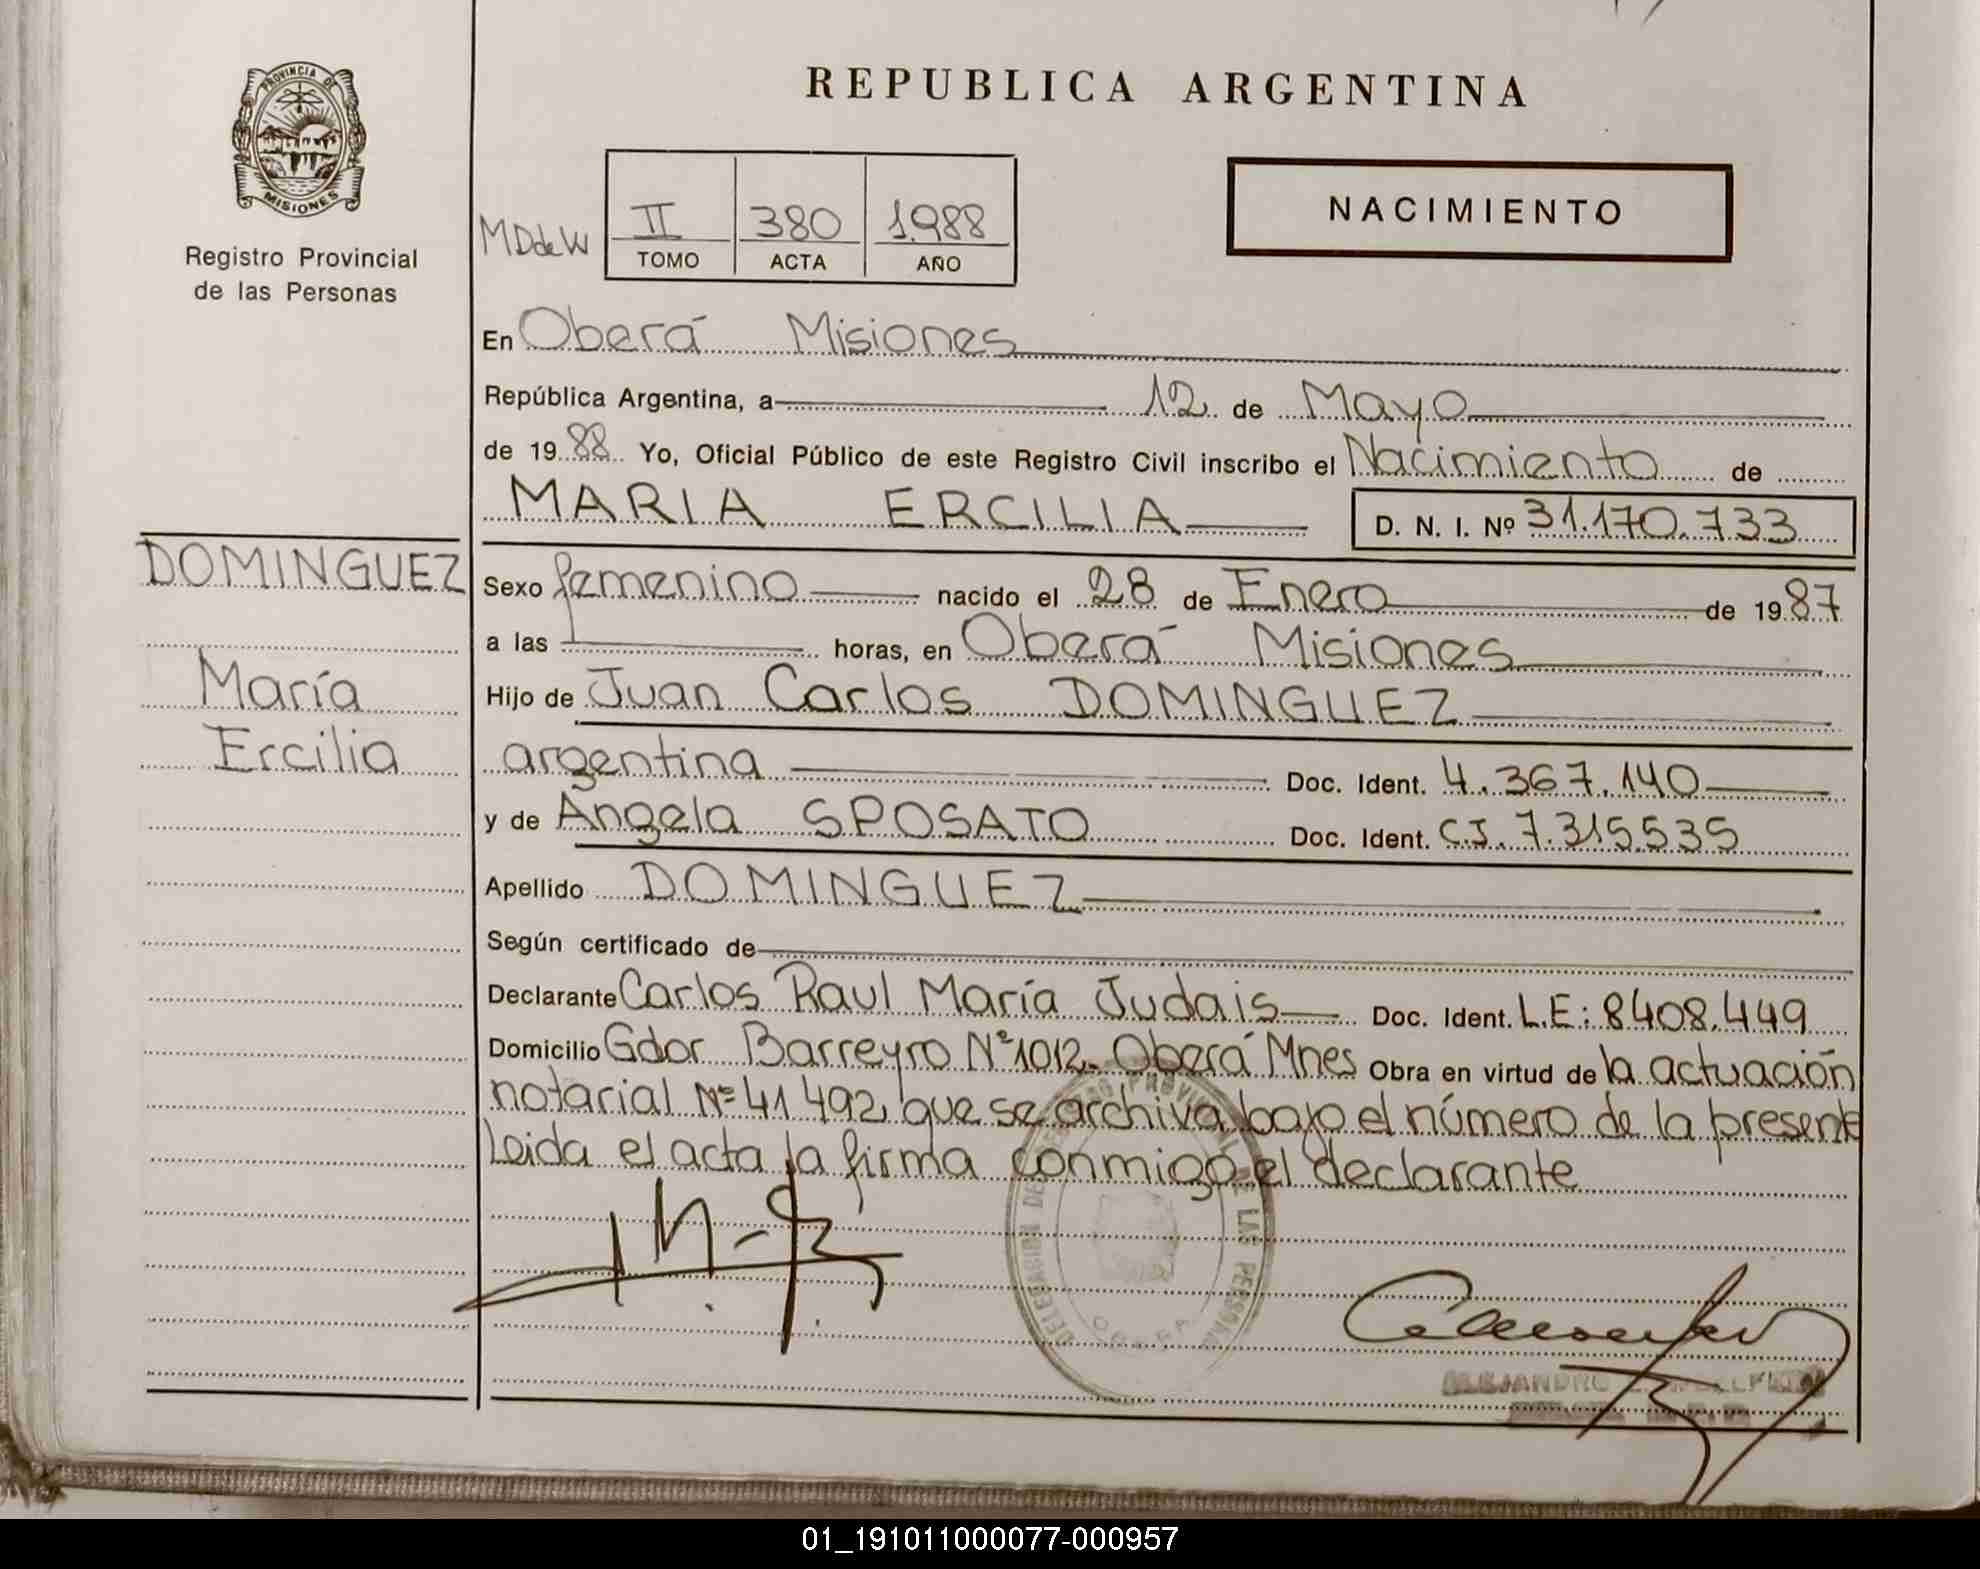 REPUBLICA ARGENTINA
PROVINCIA DE
MISIONES
Registro Provincial
de las Personas
NACIMIENTO
MDdeW
II 380 1.988
TOMO ACTA AÑO
En Oberá Misiones
República Argentina, a 12 de Mayo
de 1988 Yo, Oficial Público de este Registro Civil inscribo el Nacimiento de
MARIA ERCILIA D. N. I. Nº 31.170.733
DOMINGUEZ
María
Ercilia
Sexo femenino nacido el 28 de Enero de 1987
a las horas, en Oberá Misiones
Hijo de Juan Carlos DOMINGUEZ
argentina Doc. Ident. 4.367.140
y de Angela SPOSATO Doc. Ident. C.I. 7.315.535
Apellido DOMINGUEZ
Según certificado de
Declarante Carlos Raul María Judais Doc. Ident. L.E: 8408.449
Domicilio Gdor Barreyro Nº 1012. Oberá Mnes Obra en virtud de la actuación
notarial Nº 41492, que se archiva bajo el número de la presente
Leida el acta la firma conmigo el declarante
DELEGACION DEL REGISTRO PROVINCIAL DE LAS PERSONAS
OBERA
ALEJANDRO
01_191011000077-000957